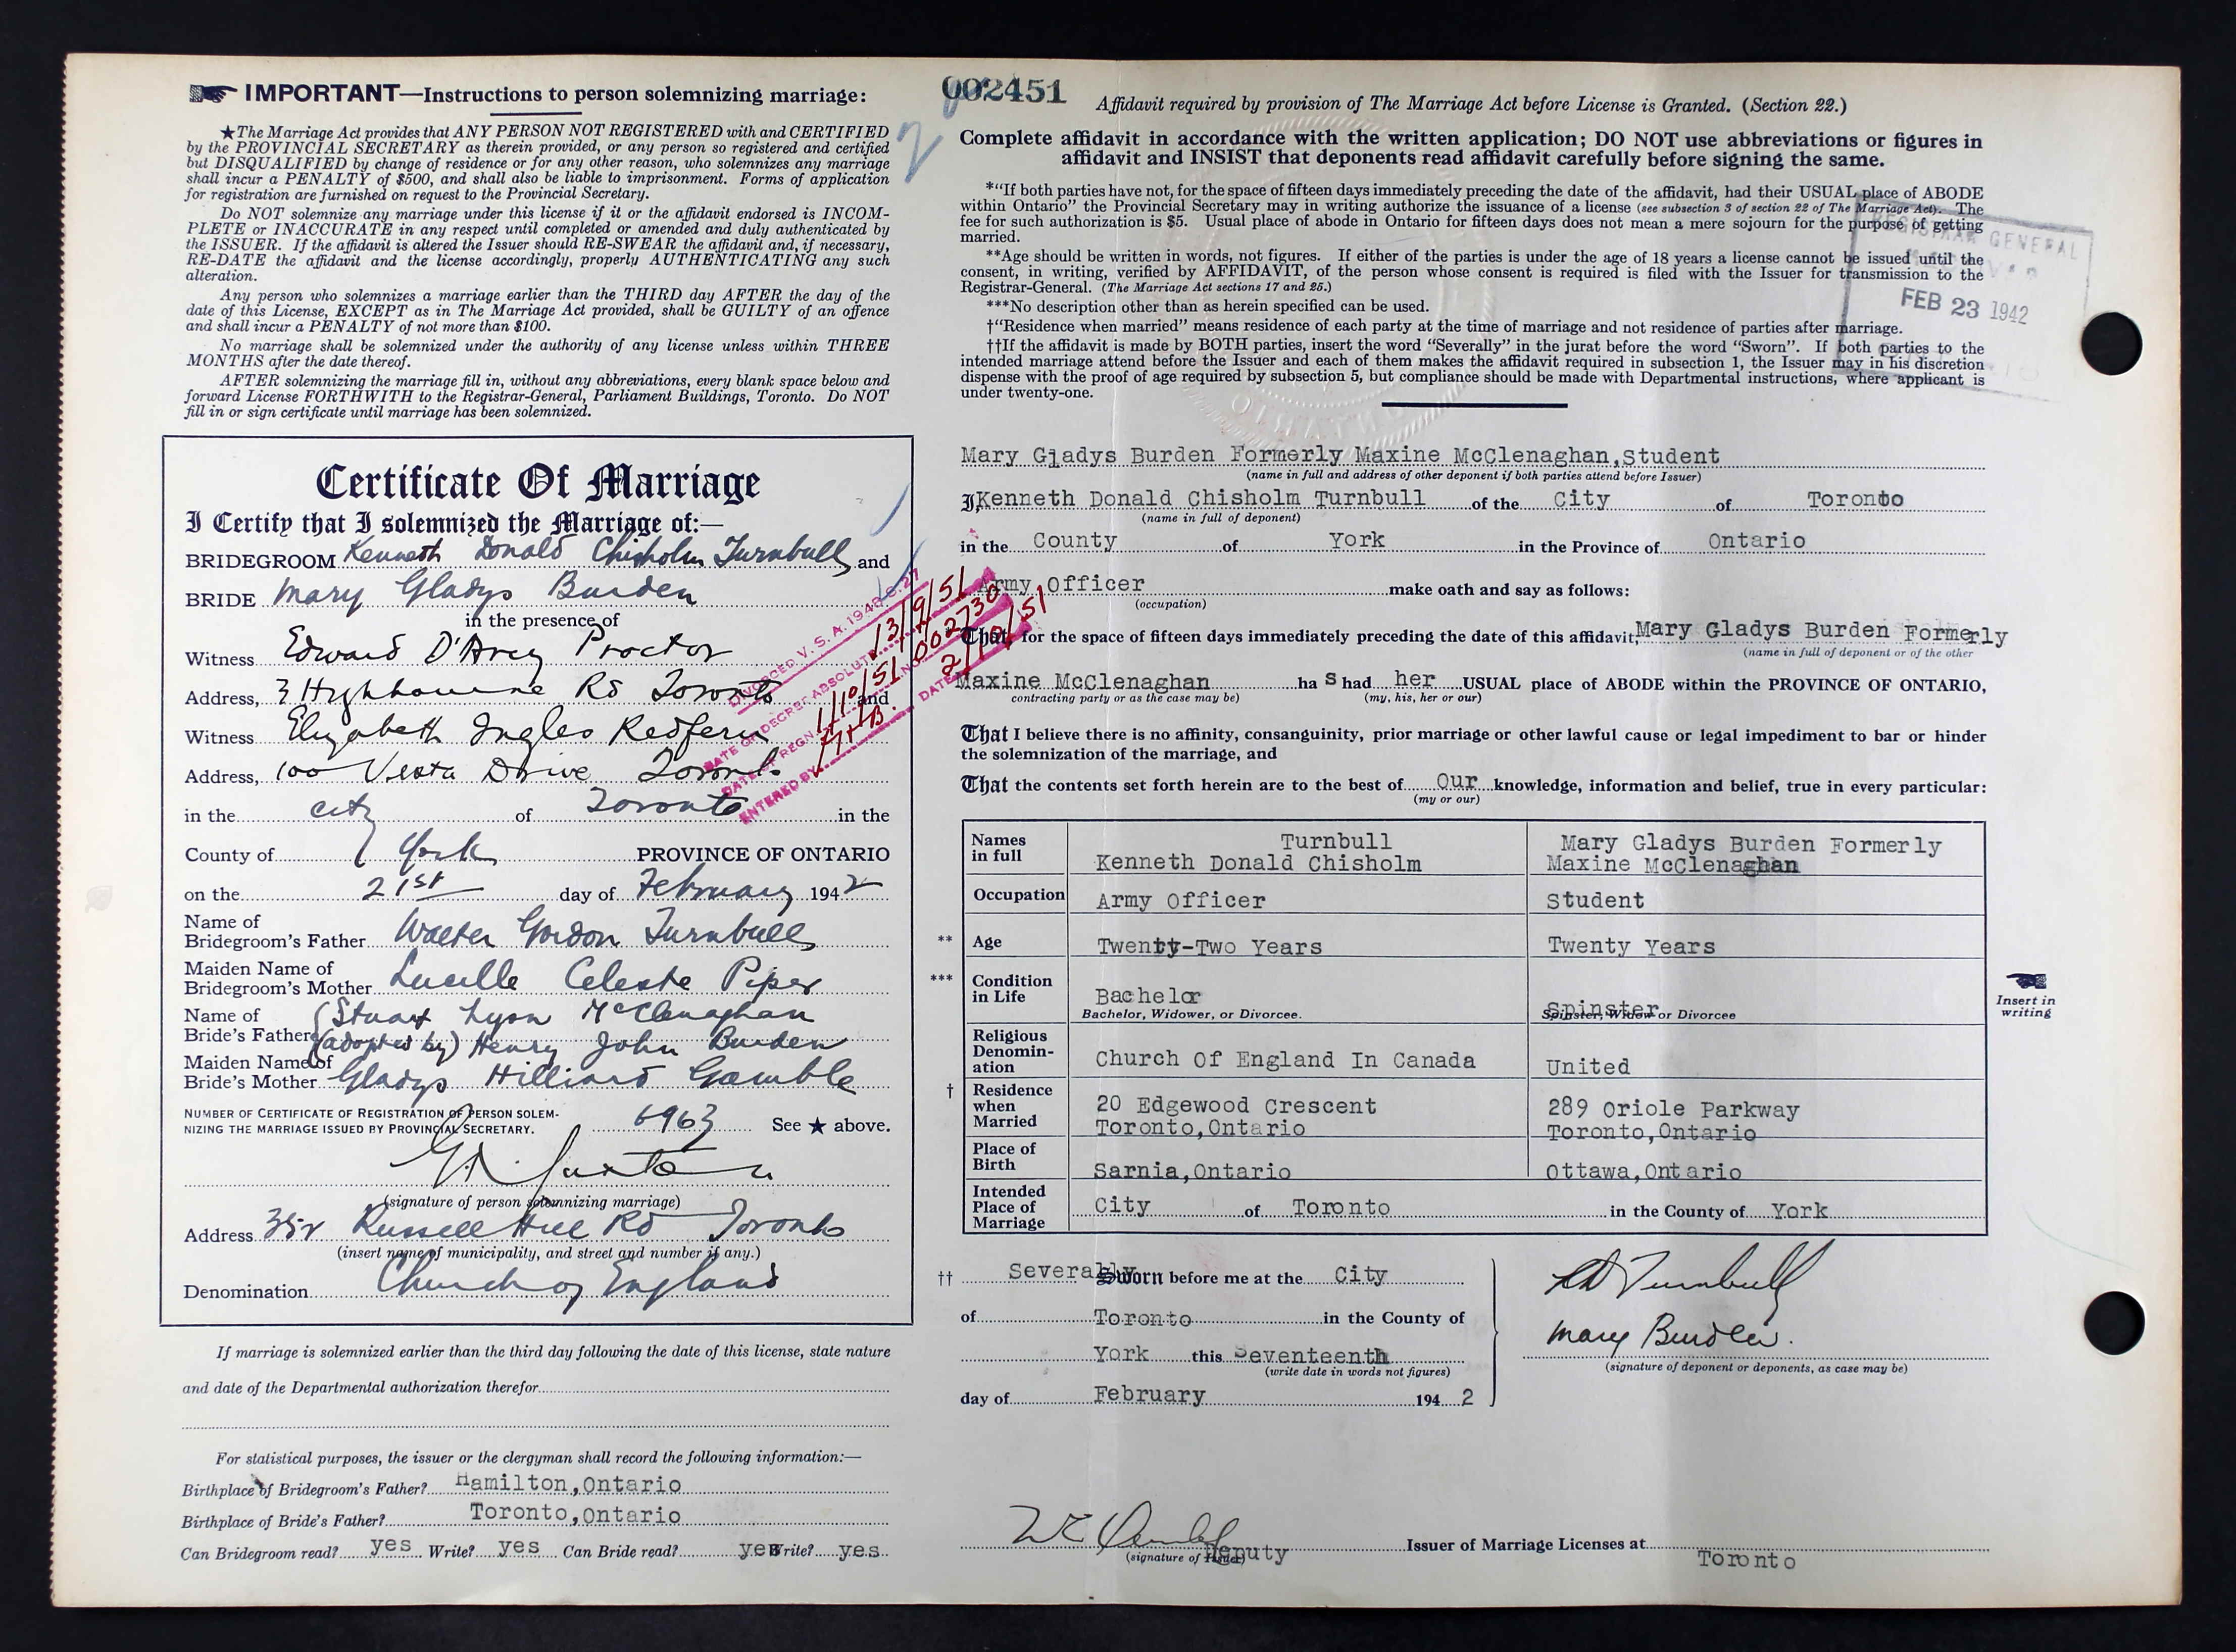 IMPORTANT—Instructions to person solemnizing marriage:
★The Marriage Act provides that ANY PERSON NOT REGISTERED with and CERTIFIED
by the PROVINCIAL SECRETARY as therein provided, or any person so registered and certified
but DISQUALIFIED by change of residence or for any other reason, who solemnizes any marriage
shall incur a PENALTY of $500, and shall also be liable to imprisonment. Forms of application
for registration are furnished on request to the Provincial Secretary.
Do NOT solemnize any marriage under this license if it or the affidavit endorsed is INCOM-
PLETE or INACCURATE in any respect until completed or amended and duly authenticated by
the ISSUER. If the affidavit is altered the Issuer should RE-SWEAR the affidavit and, if necessary,
RE-DATE the affidavit and the license accordingly, properly AUTHENTICATING any such
alteration.
Any person who solemnizes a marriage earlier than the THIRD day AFTER the day of the
date of this License, EXCEPT as in The Marriage Act provided, shall be GUILTY of an offence
and shall incur a PENALTY of not more than $100.
No marriage shall be solemnized under the authority of any license unless within THREE
MONTHS after the date thereof.
AFTER solemnizing the marriage fill in, without any abbreviations, every blank space below and
forward License FORTHWITH to the Registrar-General, Parliament Buildings, Toronto. Do NOT
fill in or sign certificate until marriage has been solemnized.
Certificate Of Marriage
I Certify that I solemnized the Marriage of:—
BRIDEGROOM Kenneth Donald Chisholm Turnbull and
BRIDE Mary Gladys Burden
in the presence of
Witness Edward D'Arcy Proctor
Address, 3 Highbourne Rd Toronto and
Witness Elizabeth Ingles Redfern
Address, 100 Vesta Drive Toronto
in the city of Toronto in the
County of York PROVINCE OF ONTARIO
on the 21st day of February 1942
Name of
Bridegroom's Father Walter Gordon Turnbull
Maiden Name of
Bridegroom's Mother Lucille Celeste Piper
Name of (Stuart Lyon McClenaghan
Bride's Father (adopted by) Henry John Burden
Maiden Name of
Bride's Mother Gladys Hilliard Gamble
NUMBER OF CERTIFICATE OF REGISTRATION OF PERSON SOLEM-
NIZING THE MARRIAGE ISSUED BY PROVINCIAL SECRETARY. 6963 See ★ above.
(signature of person solemnizing marriage)
Address 352 Russell Hill Rd Toronto
(insert name of municipality, and street and number if any.)
Denomination Church of England
If marriage is solemnized earlier than the third day following the date of this license, state nature
and date of the Departmental authorization therefor
For statistical purposes, the issuer or the clergyman shall record the following information:—
Birthplace of Bridegroom's Father? Hamilton,Ontario
Birthplace of Bride's Father? Toronto,Ontario
Can Bridegroom read? yes Write? yes Can Bride read? yes Write? yes
DIVORCED V. S. A. 1948 C.27
DATE OF DECREE ABSOLUTE 13/9/51
DATE OF REGN. 1/10/51 NO. 002730
ENTERED BY DATE 2/10/51
002451
Affidavit required by provision of The Marriage Act before License is Granted. (Section 22.)
Complete affidavit in accordance with the written application; DO NOT use abbreviations or figures in
affidavit and INSIST that deponents read affidavit carefully before signing the same.
*"If both parties have not, for the space of fifteen days immediately preceding the date of the affidavit, had their USUAL place of ABODE
within Ontario" the Provincial Secretary may in writing authorize the issuance of a license (see subsection 3 of section 22 of The Marriage Act). The
fee for such authorization is $5. Usual place of abode in Ontario for fifteen days does not mean a mere sojourn for the purpose of getting
married.
**Age should be written in words, not figures. If either of the parties is under the age of 18 years a license cannot be issued until the
consent, in writing, verified by AFFIDAVIT, of the person whose consent is required is filed with the Issuer for transmission to the
Registrar-General. (The Marriage Act sections 17 and 25.)
***No description other than as herein specified can be used.
†"Residence when married" means residence of each party at the time of marriage and not residence of parties after marriage.
††If the affidavit is made by BOTH parties, insert the word "Severally" in the jurat before the word "Sworn". If both parties to the
intended marriage attend before the Issuer and each of them makes the affidavit required in subsection 1, the Issuer may in his discretion
dispense with the proof of age required by subsection 5, but compliance should be made with Departmental instructions, where applicant is
under twenty-one.
REGISTRAR GENERAL
FEB 23 1942
Mary Gladys Burden Formerly Maxine McClenaghan,Student
(name in full and address of other deponent if both parties attend before Issuer)
I, Kenneth Donald Chisholm Turnbull of the City of Toronto
(name in full of deponent)
in the County of York in the Province of Ontario
Army Officer make oath and say as follows:
(occupation)
That, for the space of fifteen days immediately preceding the date of this affidavit, Mary Gladys Burden Formerly
(name in full of deponent or of the other
Maxine McClenaghan ha s had her USUAL place of ABODE within the PROVINCE OF ONTARIO,
contracting party or as the case may be) (my, his, her or our)
That I believe there is no affinity, consanguinity, prior marriage or other lawful cause or legal impediment to bar or hinder
the solemnization of the marriage, and
That the contents set forth herein are to the best of Our knowledge, information and belief, true in every particular:
(my or our)
Names in full Turnbull Kenneth Donald Chisholm Mary Gladys Burden Formerly Maxine McClenaghan
Occupation Army Officer Student
** Age Twenty-Two Years Twenty Years
*** Condition in Life Bachelor Spinster
Bachelor, Widower, or Divorcee. Spinster, Widow or Divorcee
Insert in
writing
Religious Denomin-ation Church Of England In Canada United
† Residence when Married 20 Edgewood Crescent Toronto,Ontario 289 Oriole Parkway Toronto,Ontario
Place of Birth Sarnia,Ontario Ottawa,Ontario
Intended Place of Marriage City of Toronto in the County of York
†† Severally Sworn before me at the City
of Toronto in the County of
York this Seventeenth
(write date in words not figures)
day of February 194 2
KD Turnbull
Mary Burden.
(signature of deponent or deponents, as case may be)
(signature of Issuer) Deputy Issuer of Marriage Licenses at Toronto